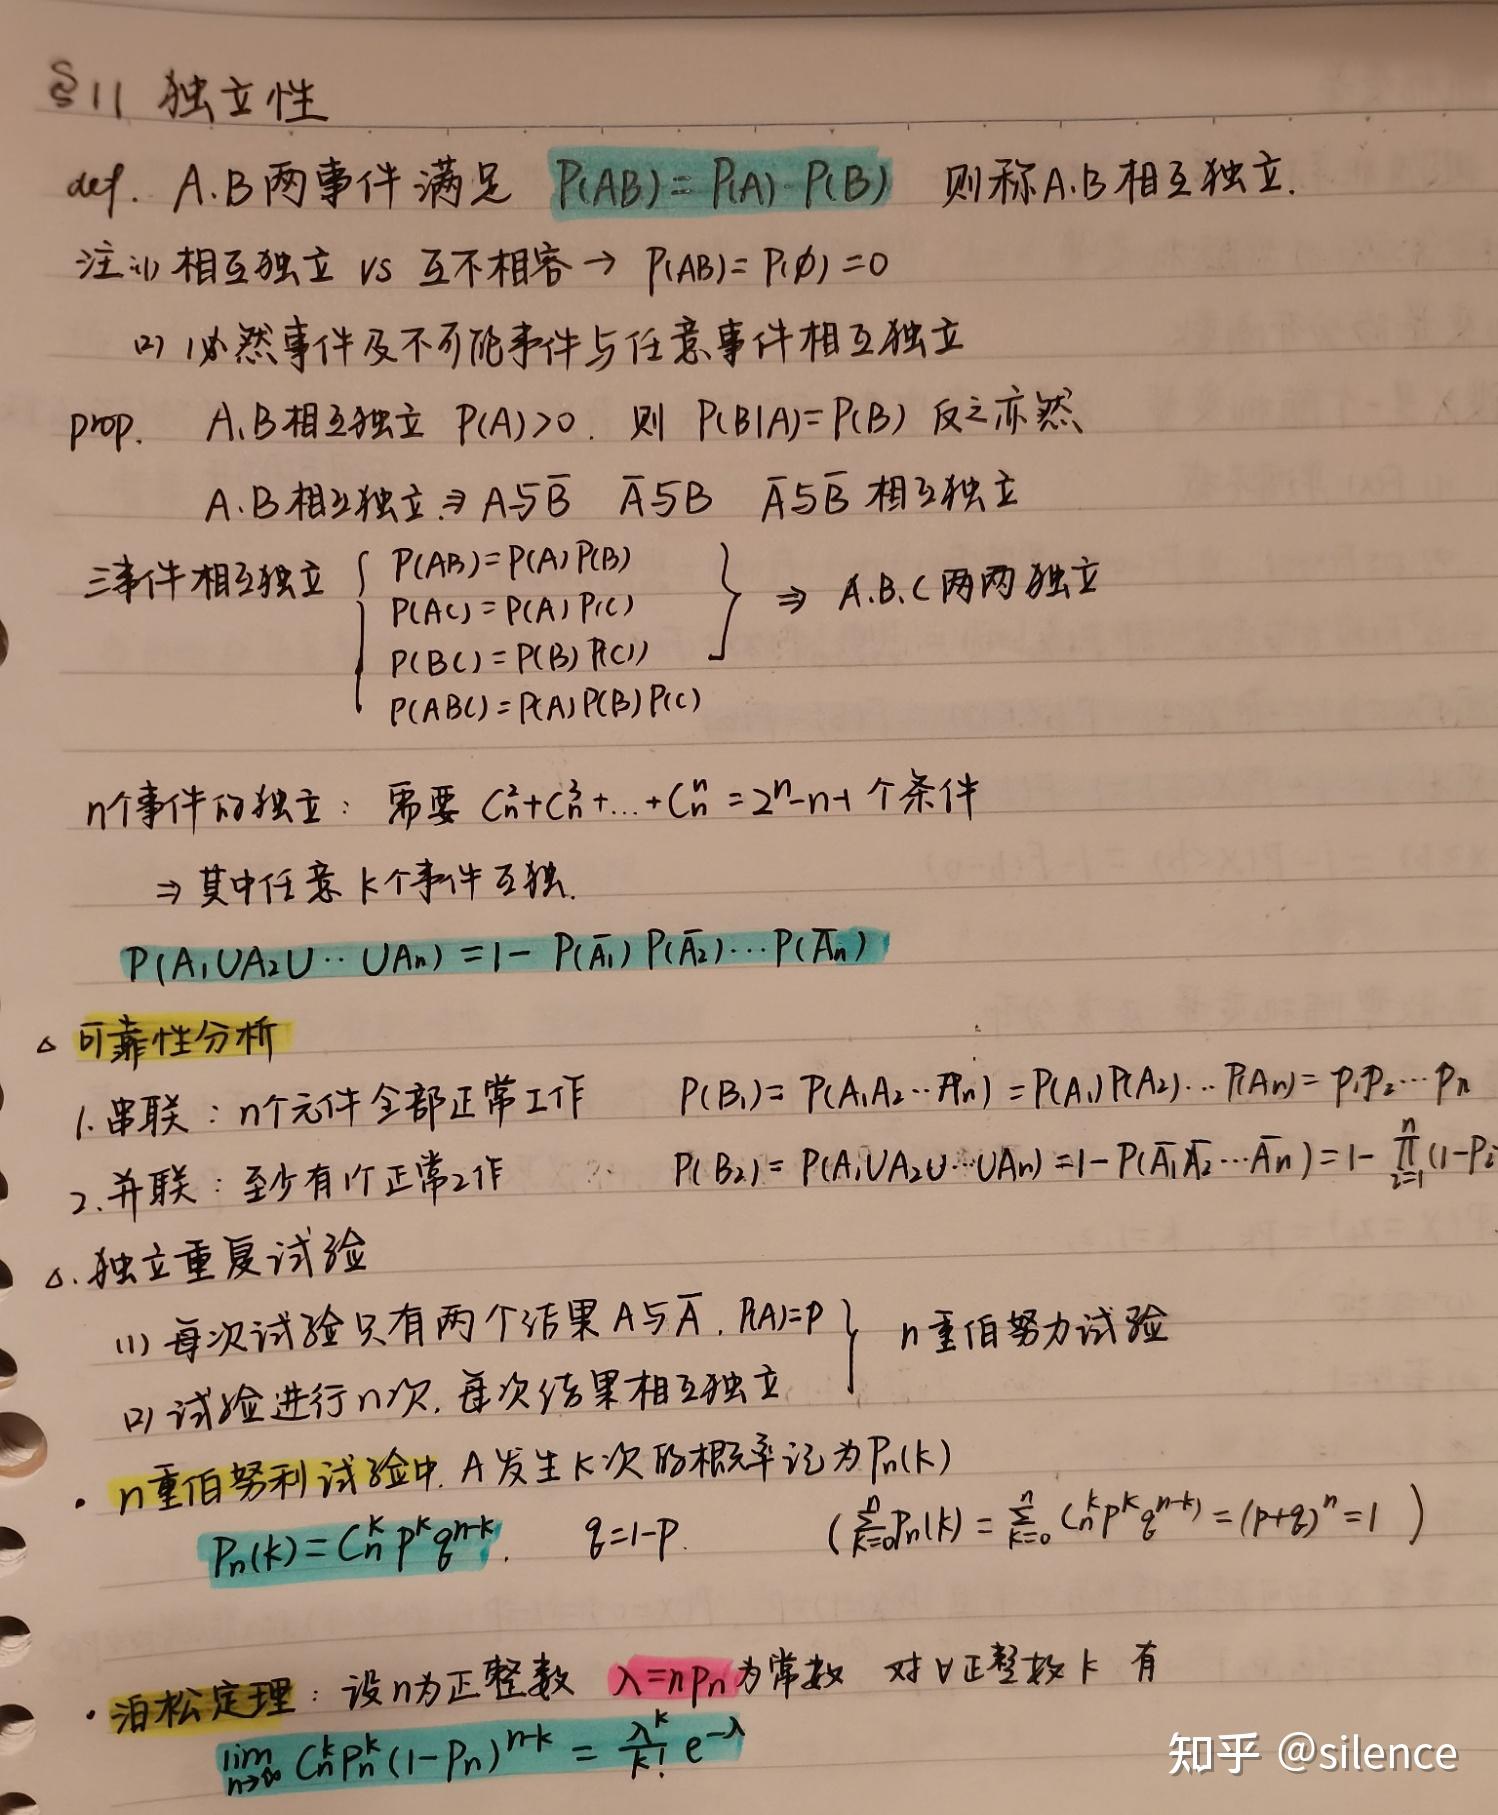 §11 独立性
def. A.B两事件满足 P(AB)=P(A)·P(B) 则称A.B相互独立.
注:(1) 相互独立 vs 互不相容→ P(AB)=P(∅)=0
(2) 必然事件及不可能事件与任意事件相互独立
prop. A.B相互独立 P(A)>0. 则 P(B|A)=P(B) 反之亦然
A.B相互独立⇒ A与B̅ A̅与B A̅与B̅ 相互独立
三事件相互独立 { P(AB)=P(A)P(B)
P(AC)=P(A)P(C)
P(BC)=P(B)P(C)) } ⇒ A.B.C两两独立
P(ABC)=P(A)P(B)P(C)
n个事件的独立: 需要 Cₙ²+Cₙ³+...+Cₙⁿ=2ⁿ-n-1个条件
⇒ 其中任意k个事件互独.
P(A₁∪A₂∪··∪Aₙ)=1-P(A̅₁)P(A̅₂)···P(A̅ₙ)
△ 可靠性分析
1.串联: n个元件全部正常工作 P(B₁)=P(A₁A₂···Aₙ)=P(A₁)P(A₂)···P(Aₙ)=p₁p₂···pₙ
2.并联: 至少有1个正常工作 P(B₂)=P(A₁∪A₂∪···∪Aₙ)=1-P(A̅₁A̅₂···A̅ₙ)=1-∏ⁿᵢ₌₁(1-Pᵢ
△.独立重复试验
(1) 每次试验只有两个结果A与A̅. P(A)=p } n重伯努力试验
(2) 试验进行n次,每次结果相互独立
· n重伯努利试验中.A发生k次的概率记为Pₙ(k)
Pₙ(k)=Cₙᵏpᵏqⁿ⁻ᵏ. q=1-p. (∑ⁿₖ₌₀Pₙ(k)=∑ⁿₖ₌₀Cₙᵏpᵏqⁿ⁻ᵏ=(p+q)ⁿ=1)
· 泊松定理: 设n为正整数 λ=npₙ为常数 对∀正整数k有
lim n→∞ CₙᵏPₙᵏ(1-Pₙ)ⁿ⁻ᵏ = λᵏ/k! e^-λ
知乎 @silence